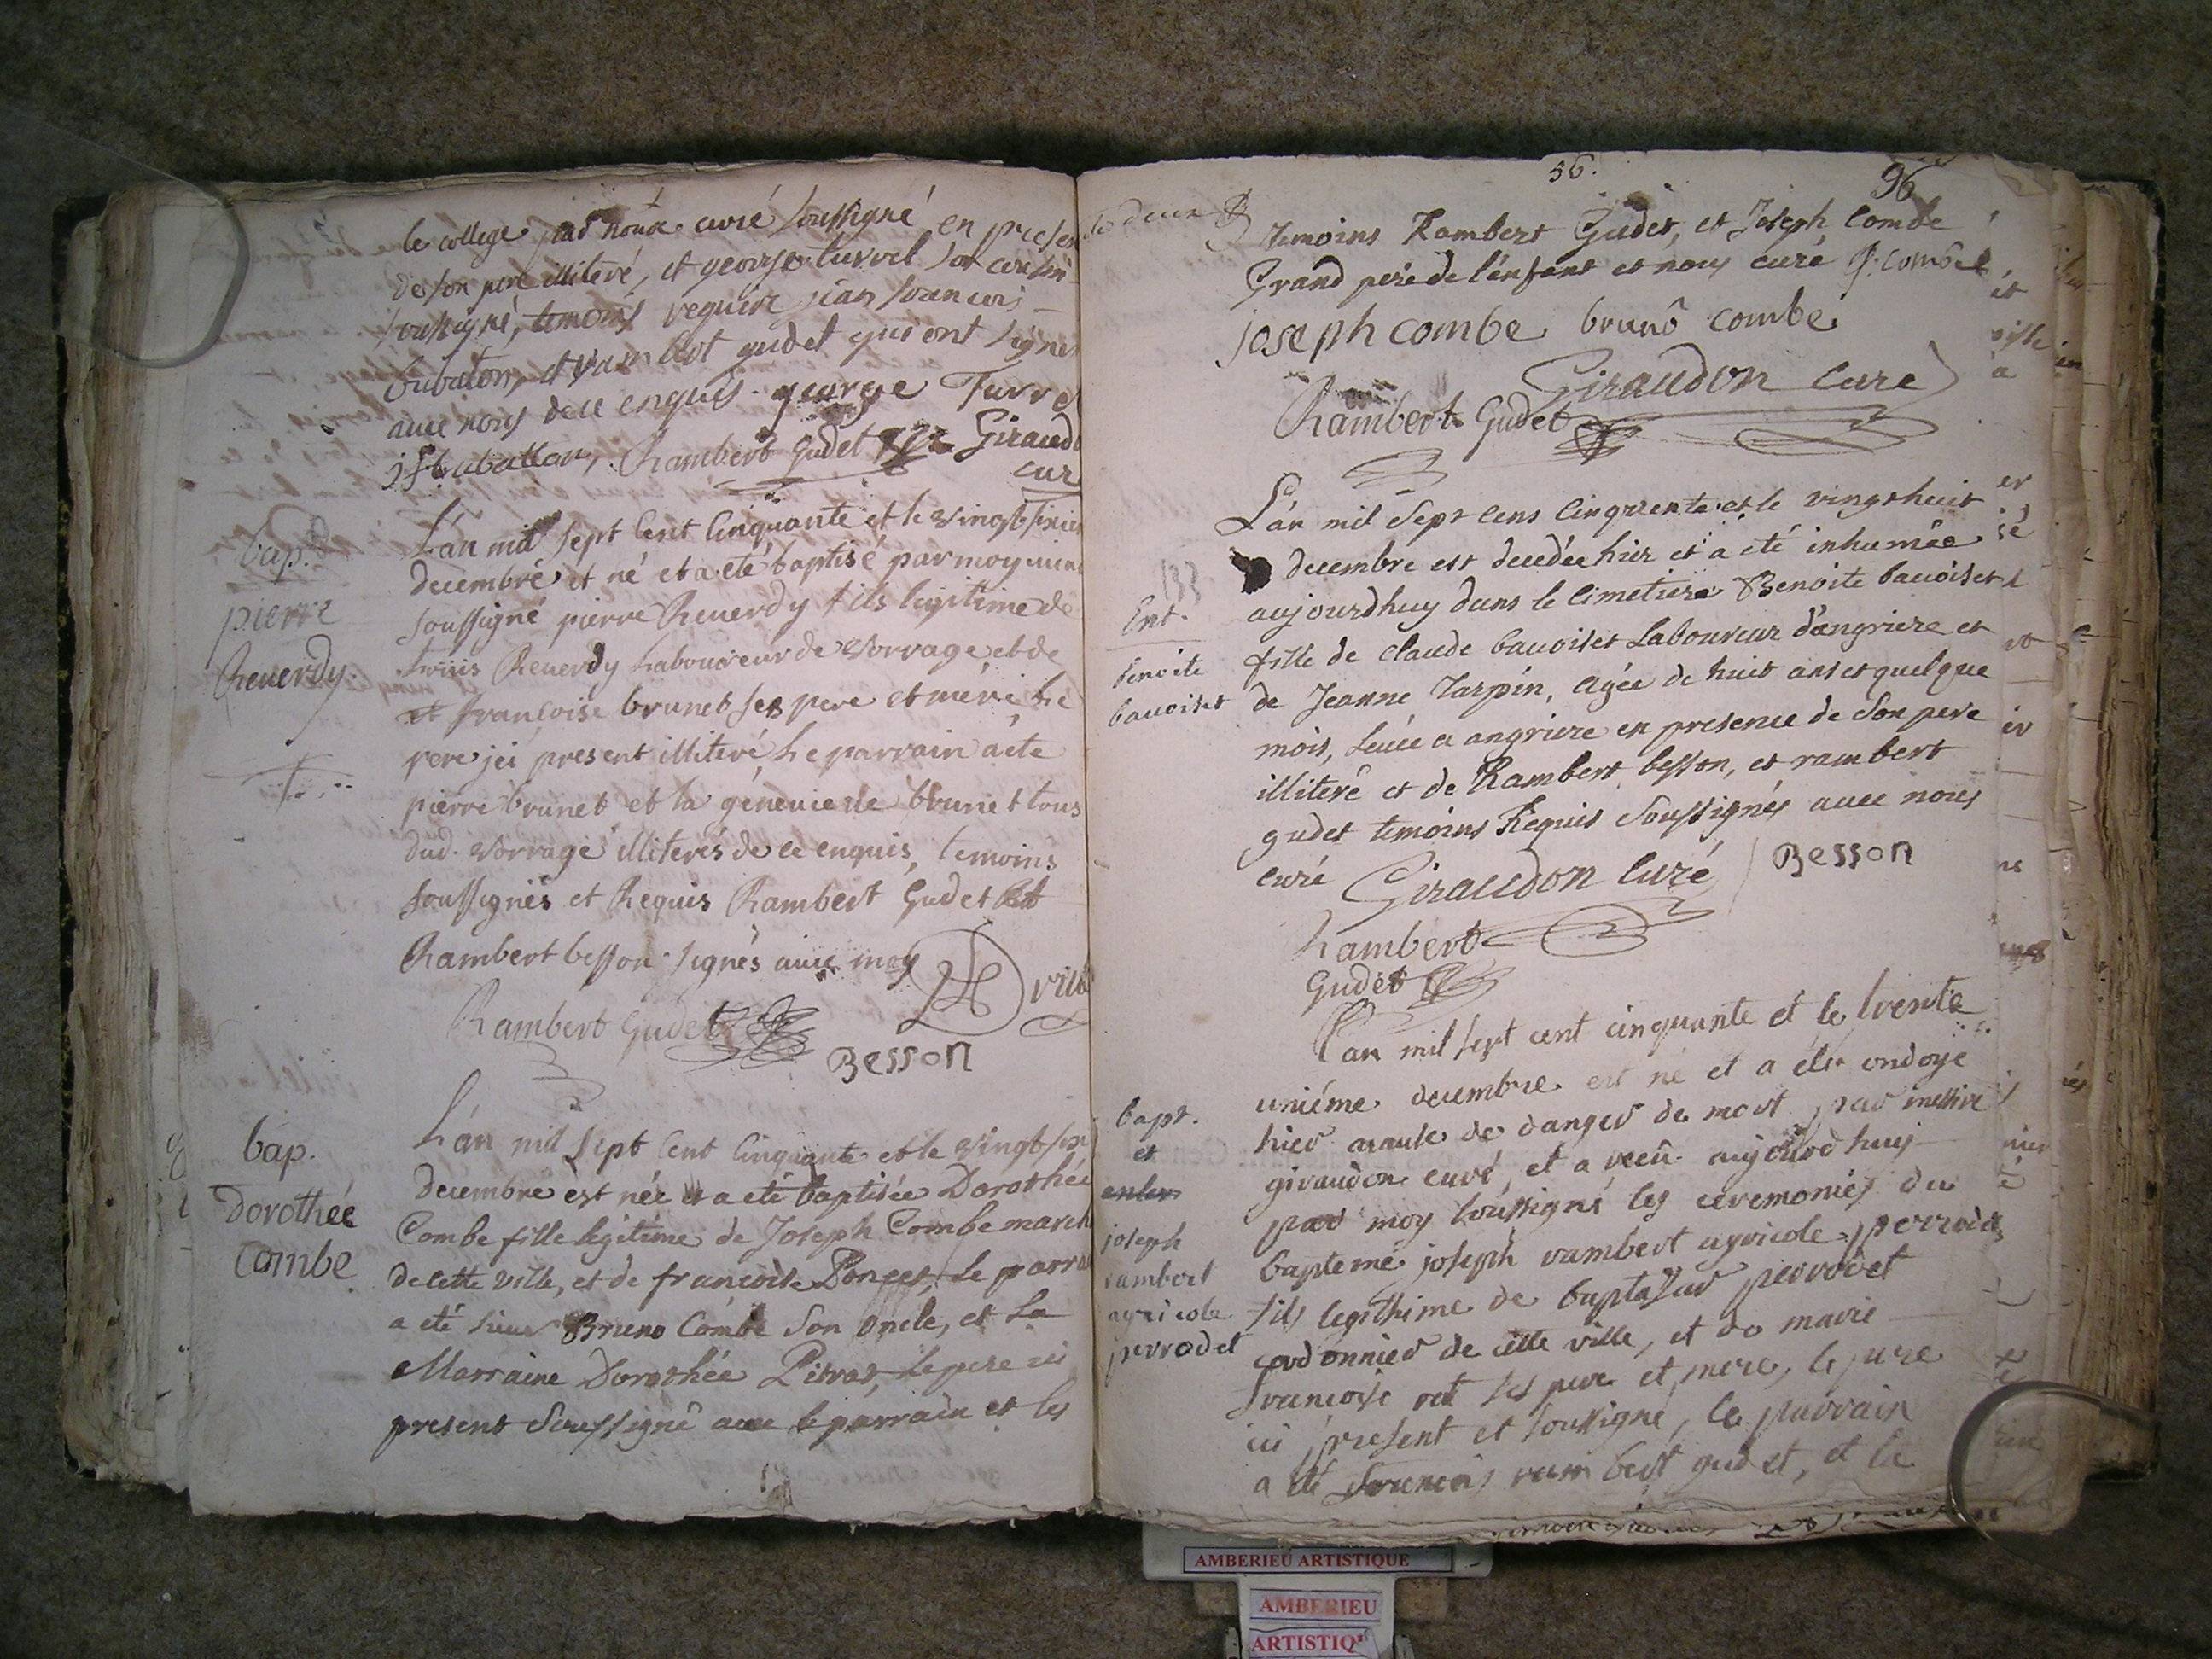 le college par nous curé soussigné en presen
de son pere illiteré, et george turrel son cousin
soussigné, temoins require jean francois
oubaton, et rambert gudet qui ont signé
avec nous de ce enquis. george Turrel
Rambert Gudet Giraud
cur
bap.
pierre
Reuerdy.
L'an mil sept cent Cinquante et le vingt sixie
decembre et né et a eté baptisé par moy
soussigné pierre Reuerdy fils legitime de
Reuerdy Laboureur de vorrage et de
et francoise brunet ses pere et mére le
pere jci present illiteré, le parrain a éte
pierre brunet et la genevieve brunet tous
dud. vorrage illiterés de ce enquis, temoins
soussignés et Requis Rambert Gudet et
Rambert besson signés avec moy
Rambert Gudet
Besson
bap.
Dorothée
Combe
L'an mil sept cent Cinquante et le vingt six
decembre est née et a eté baptisée Dorothée
Combe fille legitime de Joseph Combe march
de cette ville, et de francoise Ponces, le parra
a eté sieur Bruno Combe son oncle, et la
Marraine Dorothée Pitrat, le pere ici
present soussigné avec le parrain et les
56.
96
temoins Rambert Gudet, et Joseph Combe
Grand pere de l'enfant et nous curé J: combe
joseph combe bruno combe
Giraudon curé
Rambert Gudet
133
Ent.
benoite
bauoiset
L'an mil sept cens Cinquente et le vingt huit
decembre est decedée hier et a eté inhumée
aujourdhuy dans le Cimetiere Benoite bauoiset
fille de Claude bauoiset Laboureur d'angriere et
de Jeanne Tarpin, agée de huit ans et quelque
mois, Levée a angriere en presence de son pere
illiteré et de Rambert besson, et rambert
gudet temoins Requis soussignés avec nous
curé Giraudon Curé Besson
Rambert
Gudet
bapt.
et
enter
joseph
rambert
agricole
perrodet
L'an mil sept cent cinquante et le trente
uniéme decembre est né et a eté ondoyé
hier acause de danger de mort par messire
giraudon curé, et a receu aujourdhuy
par moy soussigné les ceremonies du
bapteme joseph rambert agricole perrodet
fils legithime de baptasar perrodet
cordonnier de cette ville, et de marie
francoise rat ses pere et mere, le pere
ici present et soussigné, le parrain
a eté francois rambert gudet, et la
AMBERIEU ARTISTIQUE
AMBERIEU
ARTISTIQ